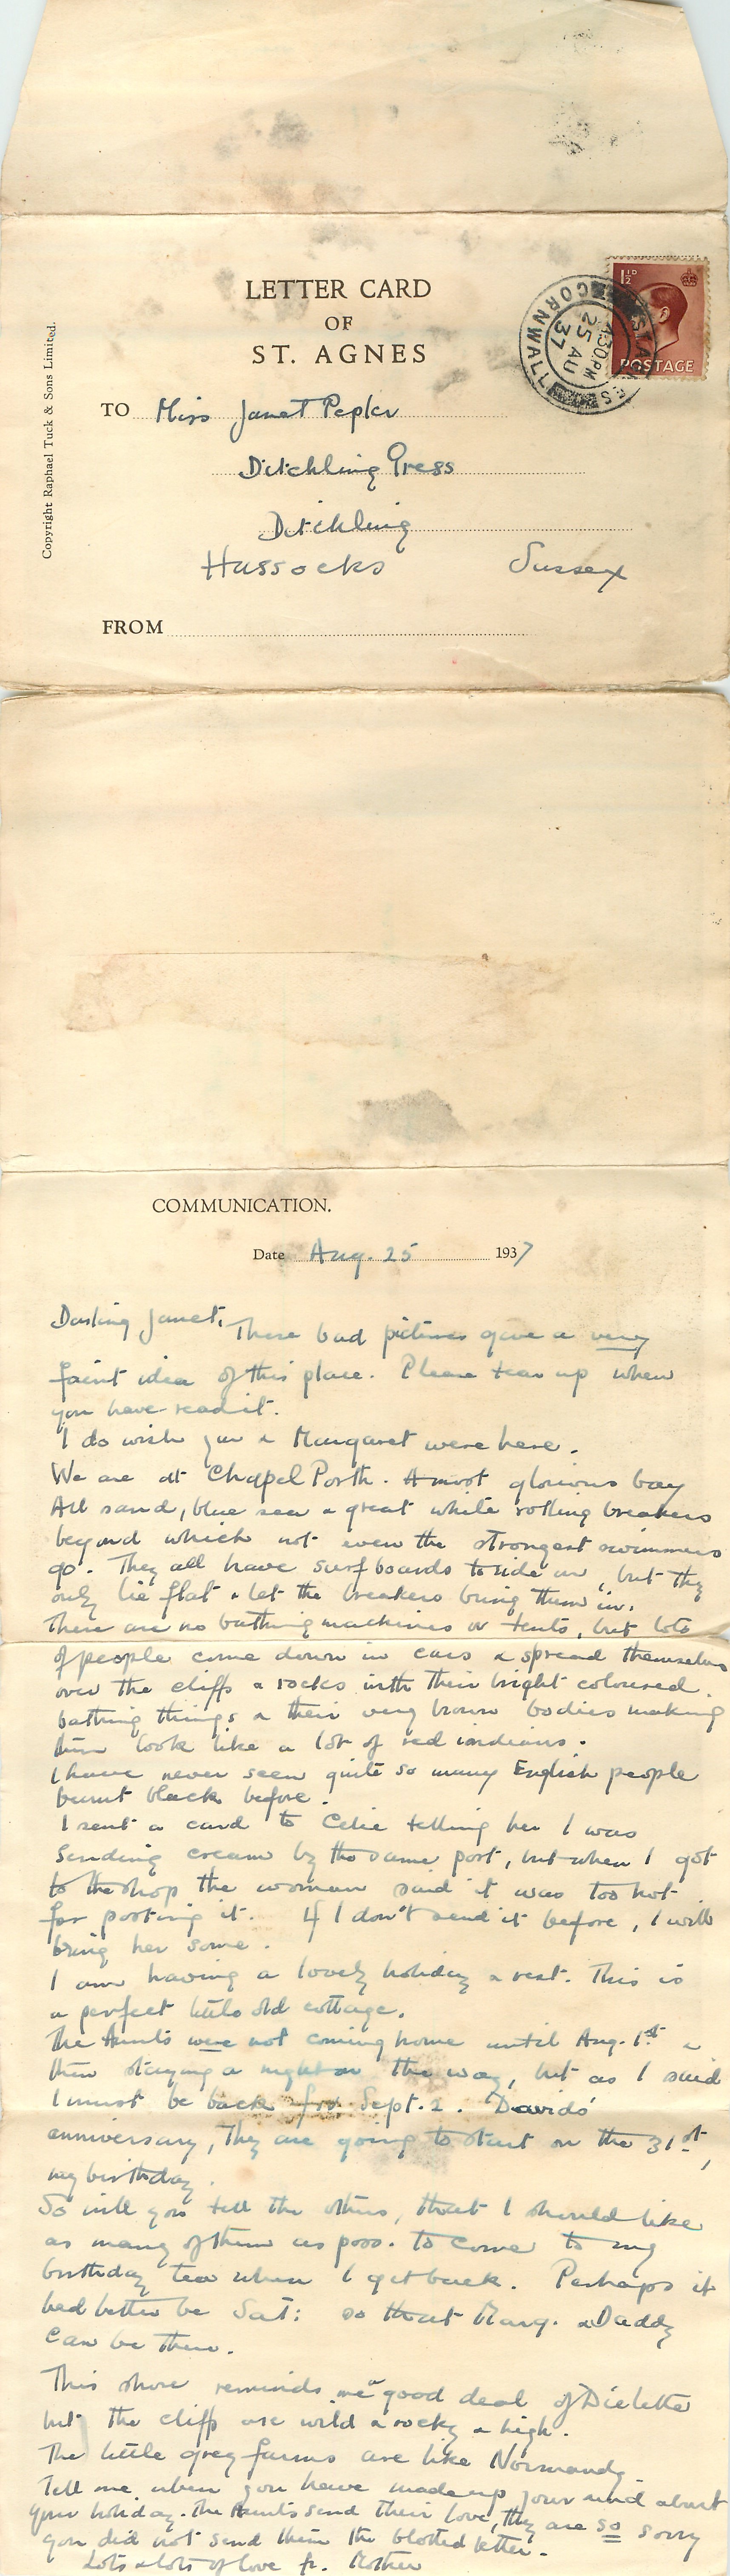 LETTER CARD
OF
ST. AGNES
Copyright Raphael Tuck & Sons Limited.
1½D
POSTAGE
ST. AGNES
4:30 PM
25 AU
37
CORNWALL
TO Miss Janet Pepler
Ditchling Press
Ditchling
Hassocks Sussex
FROM
COMMUNICATION.
Date Aug. 25 1937
Darling Janet, These bad pictures give a very
faint idea of this place. Please tear up when
you have read it.
I do wish you & Margaret were here.
We are at Chapel Porth. A most glorious bay
All sand, blue sea & great white rolling breakers
beyond which not even the strongest swimmers
go. They all have surf boards to ride on, but they
only lie flat & let the breakers bring them in.
There are no bathing machines or tents, but lots
of people come down in cars & spread themselves
over the cliffs & rocks with their bright coloured
bathing things & their very brown bodies making
them look like a lot of red indians.
I have never seen quite so many English people
burnt black before.
I sent a card to Celie telling her I was
sending cream by the same post, but when I got
to the shop the woman said it was too hot
for posting it. If I don't send it before, I will
bring her some.
I am having a lovely holiday & rest. This is
a perfect little old cottage.
The Aunts were not coming home until Aug. 1st &
then staying a night on the way, but as I said
I must be back for Sept. 2. Davids'
anniversary, They are going to start on the 31st,
my birthday.
So will you tell the others, that I should like
as many of them as poss. to come to my
birthday tea when I get back. Perhaps it
had better be Sat: so that Marg. & Daddy
can be there.
This shore reminds me a good deal of Dielette
but the cliffs are wild & rocky & high.
The little grey farms are like Normandy
Tell me when you have made up your mind about
your holiday. The Aunts send their love, they are so sorry
you did not send them the blotted letter.
Lots & lots of love fr. Mother